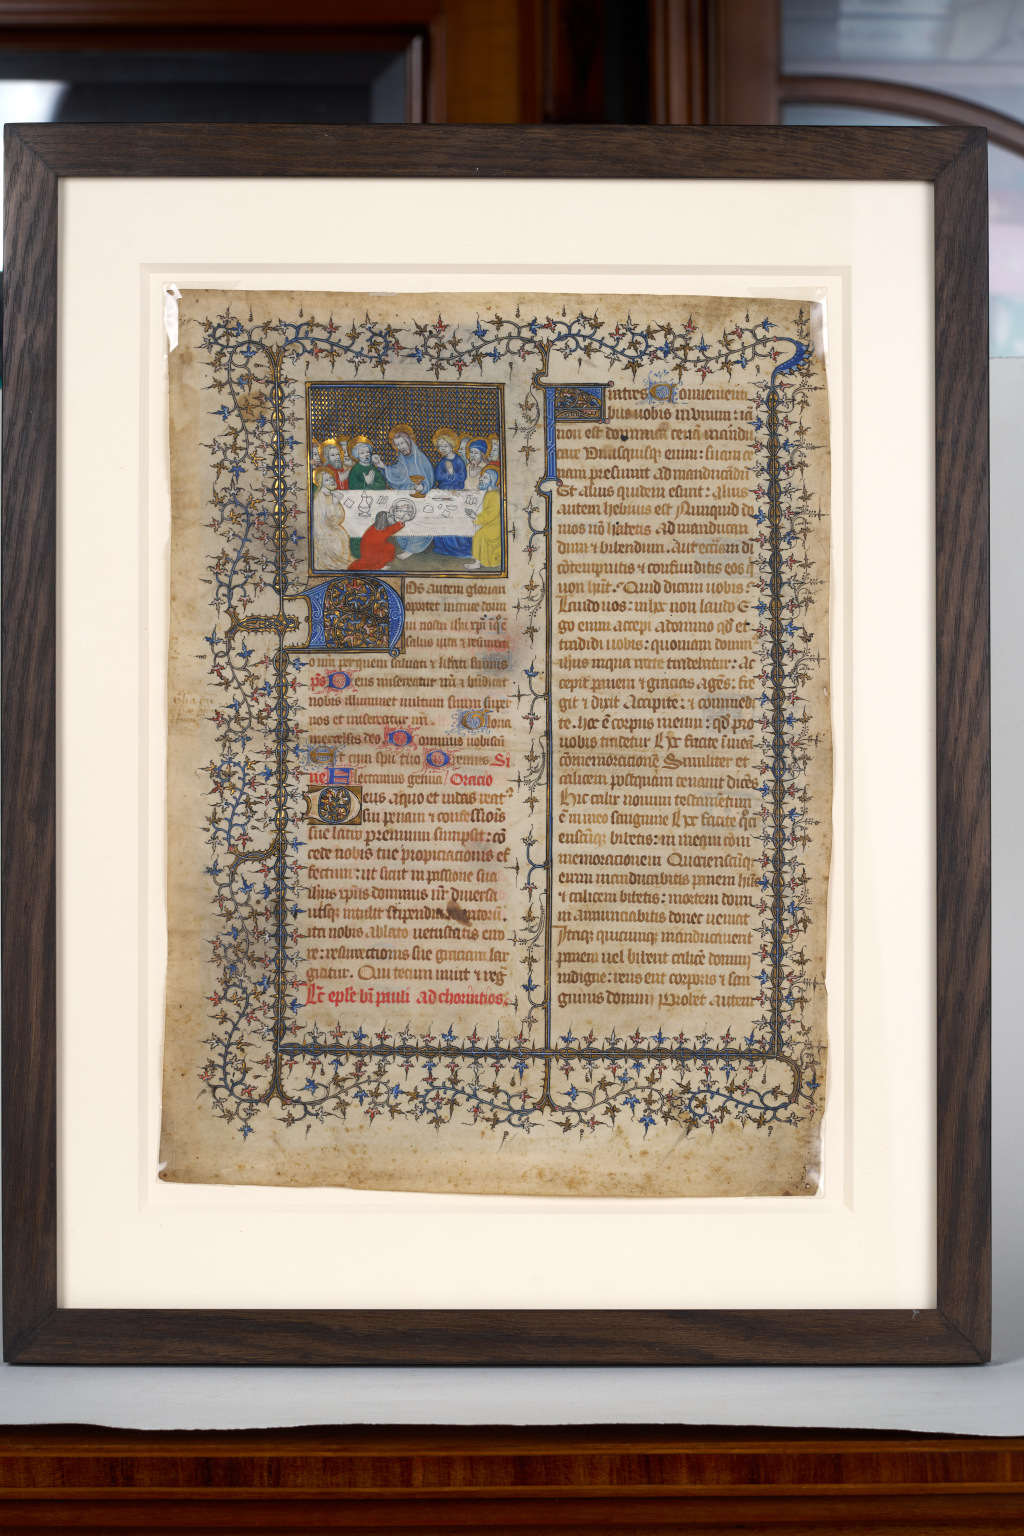 Os autem gloriari
oportet in cruce dom
ini nostri ihu xpi in q͛ ē
salus vita & resurrecti
o nr̄a per quem saluati & lib̄ati sumus
p̄s Deus misereatur nr̄i & bn̄dicat
nobis illuminet vultum suum super
nos et misereatur nr̄i. Gloria
in excelsis deo Dominus uobiscū
Et cum sp̄u tuo Oremus Si
ue Flectamus genua Oracio
Deus a quo et iudas reat
sui penam & confessiōis
sue latro premium sumpsit: cō
cede nobis tue propiciacionis ef
fectum: ut sicut in passione sua
ihūs xp̄us dominus nr̄ diuersa
utrisq̄ intulit stipendia meritorū.
ita nobis ablato uetustatis erro
re: resurrectionis sue graciam lar
giatur. Qui tecum uiuit & reḡ
Lc̄ ep̄le bī pauli ad chorintios.
Fratres Conuenienti
bus uobis in vnum: iā
non est dominicā cenā mandu
care Vnusquisque enim: suam ce
nam presumit ad manducādū
Et alius quidem esurit: alius
autem hebrius est Nunquid do
mos nō habetis ad manducan
dum & bibendum. Aut ecc̄iam dī
cōtempnitis & confunditis eos q̄
non hn̄t. Quid dicam uobis:
Laudo uos: in hoc non laudo E
go enim accepi a domino qd̄ et
tradidi uobis: quoniam domin
ihūs in qua nocte tradebatur: Ac
cepit panem & gracias agēs: fre
git & dixit Accipite: & comedi
te. hoc ē corpus meum: qd̄ pro
uobis tradetur Hoc facite ī meā
cōmemoracionē Similiter et
calicem postquam cenauit dicēs
Hic calix nouum testamentum
ē in meo sanguine Hoc facite q̄ci
enscūq̄ bibetis: in meam com
memoracionem Quociensciūq̄
enim manducabitis panem hūc
& calicem bibetis: mortem dom
ini annunciabitis donec ueniat
Itaq̄ quicunq̄ manducauerit
panem uel biberit calicē domini
indigne: reus erit corporis & san
guinis domini Probet autem